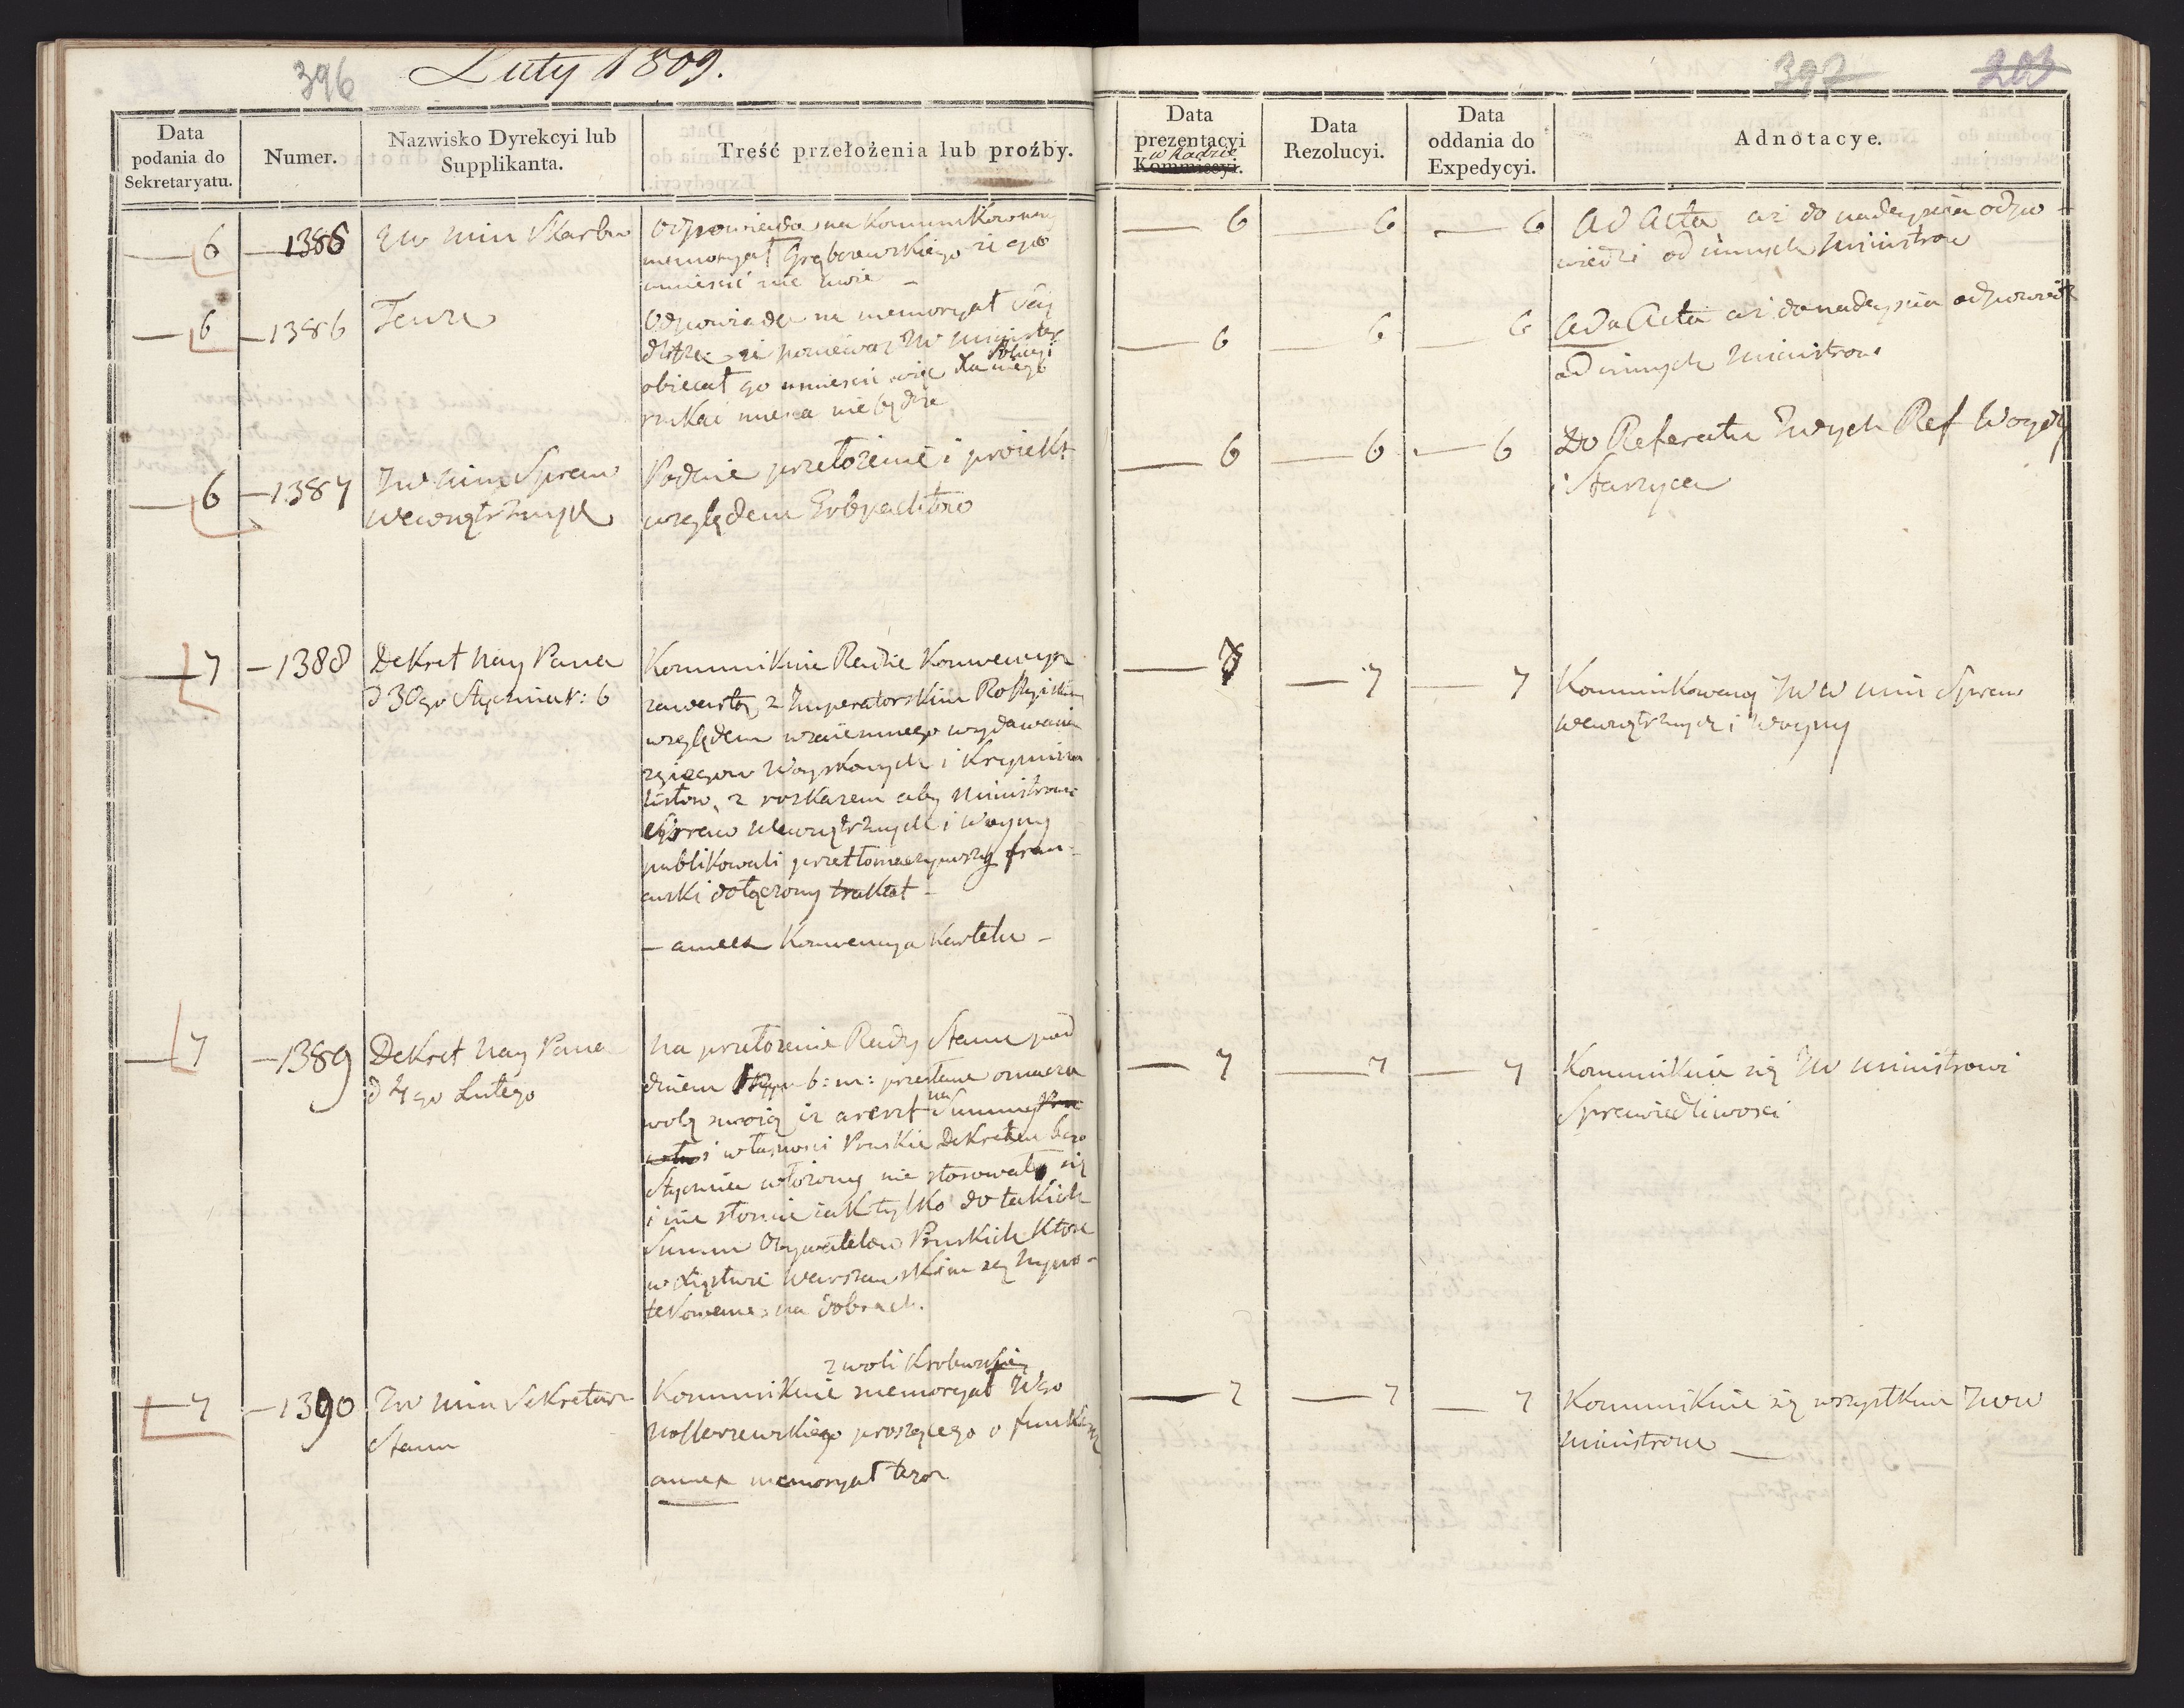 396
Luty 1809.
Data podania do Sekretaryatu.
Numer.
Nazwisko Dyrekcyi lub Supplikanta.
Treść przełożenia lub proźby.
6 1386 JW Min Skarbu
Odpowiada na kommunikowany
memoryał Grąbczewskiego iż go
umieścić nie może
6 1386 Tenże
Odpowiada na memoryał
że ponieważ JW Minister
Policyi
obiecał go umieścić więc dla niego
szukać mieysca nie będzie
6 1387 JW Min Spraw
Wewnętrznych
Podaie przełożenie i proiekt
względem
7 1388 Dekret Nay Pana
d 30go Stycznia r: b
Kommunikuie Radzie Konwencyą
zawartą z Imperatorskim Rossyiskim
względem wzaiemnego wydawania
zbiegow Woyskowych i Krymina
listow, z roskazem aby Ministrowie
Spraw Wewnętrznych i Woyny
publikowali przetłomaczywszy fran-
cuski dołączony traktat -
- annex Konwencya Kartelu -
7 1389 Dekret Nay Pana
d 4go Lutego
Na przełożenie Rady Stanu pod
dniem b: m: przesłane oznacza
wolą swoią iż areszt na Summy
i własności Pruskie Dekretem
Stycznia włożony nie stosował się
i nie stosuie iak tylko do takich
Summ Obywatelow Pruskich które
w Xięstwie Warszawskim są hypo-
tekowane na dobrach.
7 1390 JW Min Sekretarz
Stanu
z woli Krolewskiey
Kommunikuie memoryał Wgo
proszącego o funkcyą
annex memoryał tegoż
397
203
Data prezentacyi w Radzie Kommissyi.
Data Rezolucyi.
Data oddania do Expedycyi.
Adnotacye.
6 6 6 Ad Acta aż do nadeyścia odpo-
wiedzi od innych Ministrow
6 6 6 Ad Acta aż do nadeyścia odpowiedzi
od innych Ministrow
6 6 6 Do Referatu JWych Ref Woydy
i Staszyca
7 7 7 Kommunikowany JWW Min Spraw
Wewnętrznych i Woyny
7 7 7 Kommunikuie się JW Ministrowi
Sprawiedliwości
7 7 7 Kommunikuie się wszystkim JWW
Ministrom